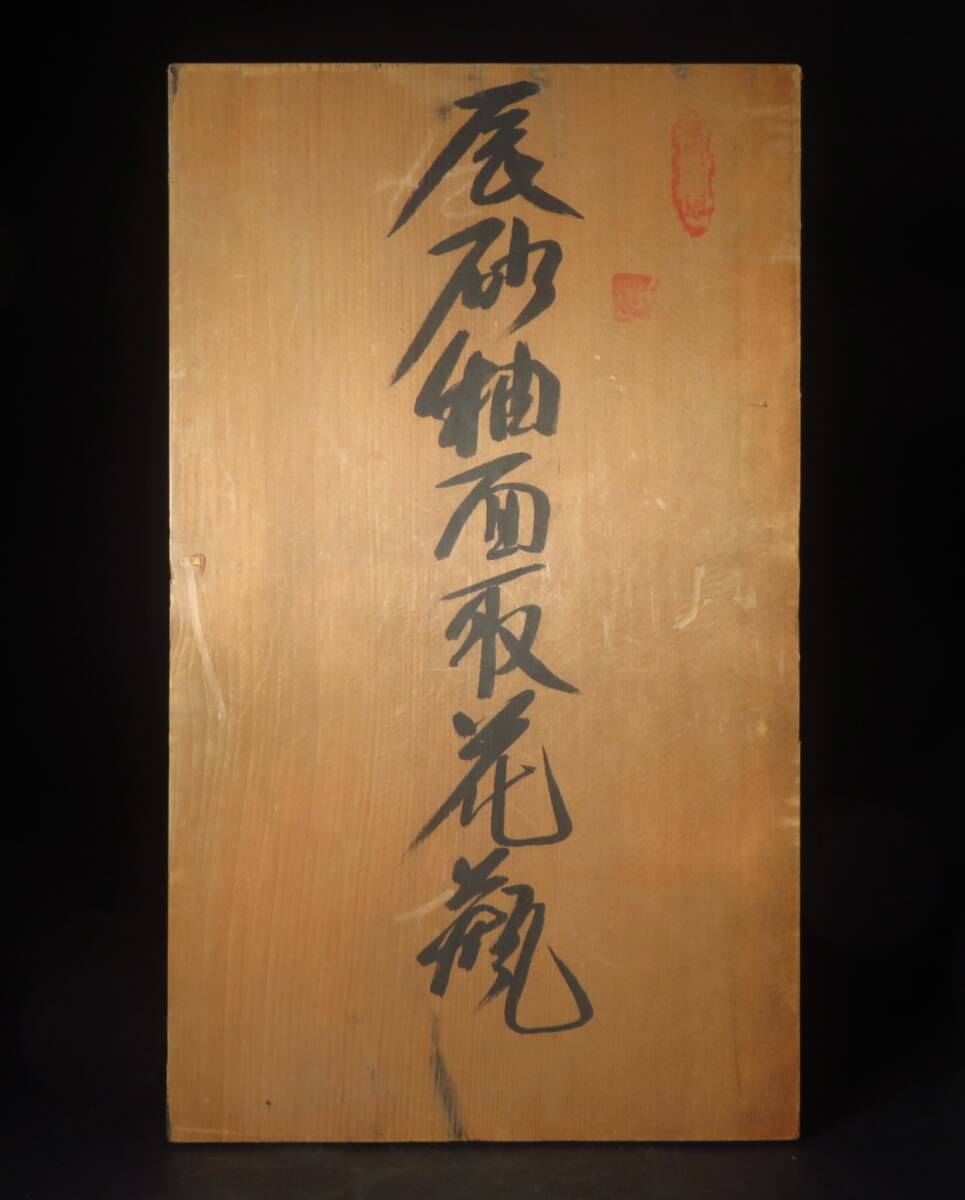 辰砂釉面取花瓶